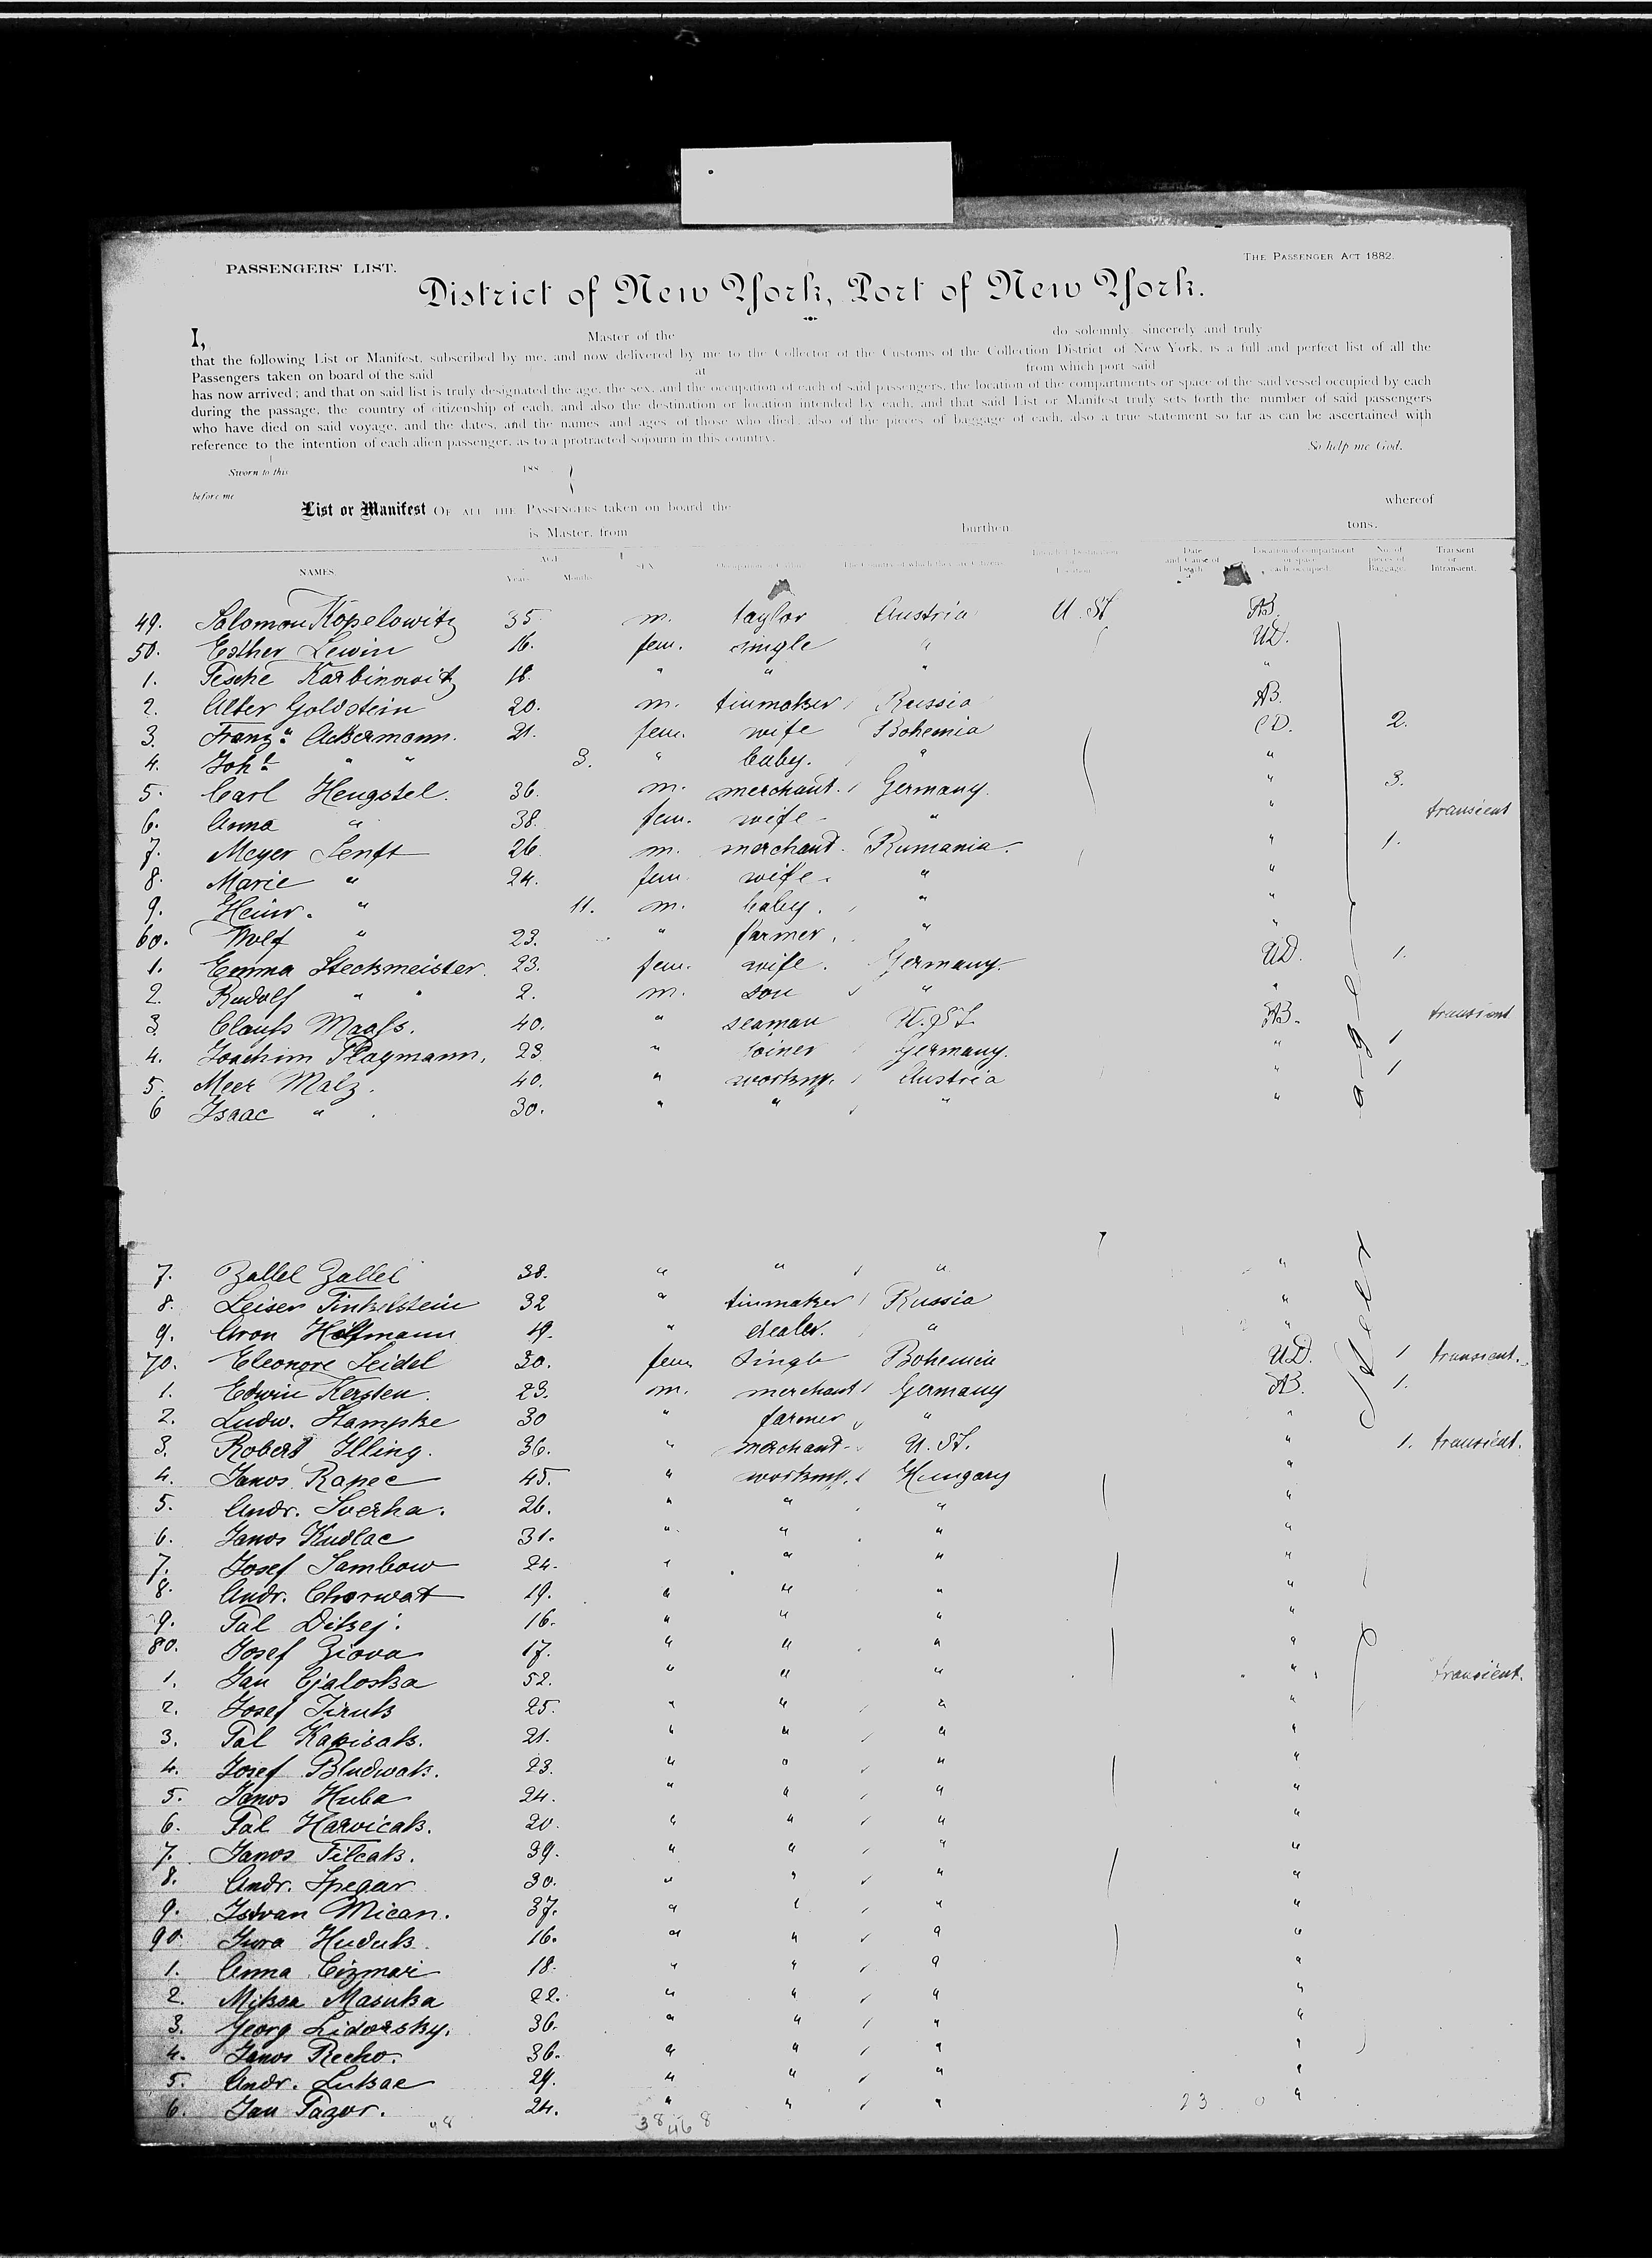 PASSENGERS' LIST.
THE PASSENGER ACT 1882.
District of New York, Port of New York.
I, Master of the do solemnly, sincerely and truly
that the following List or Manifest, subscribed by me, and now delivered by me to the Collector of the Customs of the Collection District of New York, is a full and perfect list of all the
Passengers taken on board of the said at from which port said
has now arrived; and that on said list is truly designated the age, the sex, and the occupation of each of said passengers, the location of the compartments or space of the said vessel occupied by each
during the passage, the country of citizenship of each, and also the destination or location intended by each, and that said List or Manifest truly sets forth the number of said passengers
who have died on said voyage, and the dates, and the names and ages of those who died, also of the pieces of baggage of each, also a true statement so far as can be ascertained with
reference to the intention of each alien passenger, as to a protracted sojourn in this country.
So help me God.
Sworn to this 188
before me
List or Manifest OF ALL THE PASSENGERS taken on board the whereof
is Master, from burthen tons.
NAMES. AGE Years Months SEX Date and Cause of Death Location of compartment or space each occupied No. of pieces of Baggage Transient or Intransient.
49. Salomon Kopelowitz 35 m. taylor Austria U. St AB.
50. Esther Lewin 16. fem. single " UD.
1. Pesche Karbinowitz 18. " " " "
2. Alter Goldstein 20. m. tinmaker Russia AB.
3. Franz.a Ackermann. 21. fem. wife Bohemia CD. 2.
4. Joh.a " " 3. " baby. " "
5. Carl Hengstel. 36. m. merchant. Germany. " 3.
6. Anna " 38. fem. wife " " transient
7. Meyer Senft 26 m. merchant. Rumania. " 1.
8. Marie " 24. fem. wife. " "
9. Heinr. " 11. m. baby. " "
60. Wolf " 23. " farmer. " "
1. Emma Steckmeister. 23. fem. wife. Germany. UD. 1.
2. Rudolf " " 2. m. son " "
3 Clauss Maass. 40. " seaman U. St. AB. transient
4. Joachim Plagmann. 23 " joiner Germany. " 1
5. Meer Malz. 40. " workm. Austria " 1
6 Isaac " 30. " " " "
7. Zallel Zallel 38. " " " "
8. Leiser Finkelstein 32 " tinmaker Russia "
9. Aron Hoffmann 19. " dealer. " "
70. Eleonore Seidel 30. fem. single Bohemia UD. 1 transient.
1. Edwin Kersten. 23. m. merchant Germany AB. 1.
2. Ludw. Stampke 30 " farmer " "
3. Robert Illing. 36. " merchant U. St. " 1. transient.
4. Janos Rapec 45. " workm. Hungary "
5. Andr. Sverha. 26. " " " "
6. Janos Kudlac 31. " " " "
7. Josef Sambow 24. " " " "
8. Andr. Chorwat 19. " " " "
9. Pal Ditkej. 16. " " " "
80. Josef Ziova 17. " " " "
1. Jan Cjaloska 52. " " " " transient.
2. Josef Jiruk 25. " " " "
3. Pal Kapisak. 21. " " " "
4. Josef Bludwak. 23. " " " "
5. Janos Huba 24. " " " "
6. Pal Harvicak. 20. " " " "
7. Janos Filcak. 39. " " " "
8. Andr. Spegar 30. " " " "
9. Istvan Mican. 37. " " " "
90. Jura Huduk. 16. " " " "
1. Anna Cizmar 18. " " " "
2. Miksa Masuka 22. " " " "
3. Georg Lidorsky. 36. " " " "
4. Janos Recko. 36. " " " "
5. Andr. Luksac 29. " " " "
6. Jan Pazor. 24. " " " "
Steerage